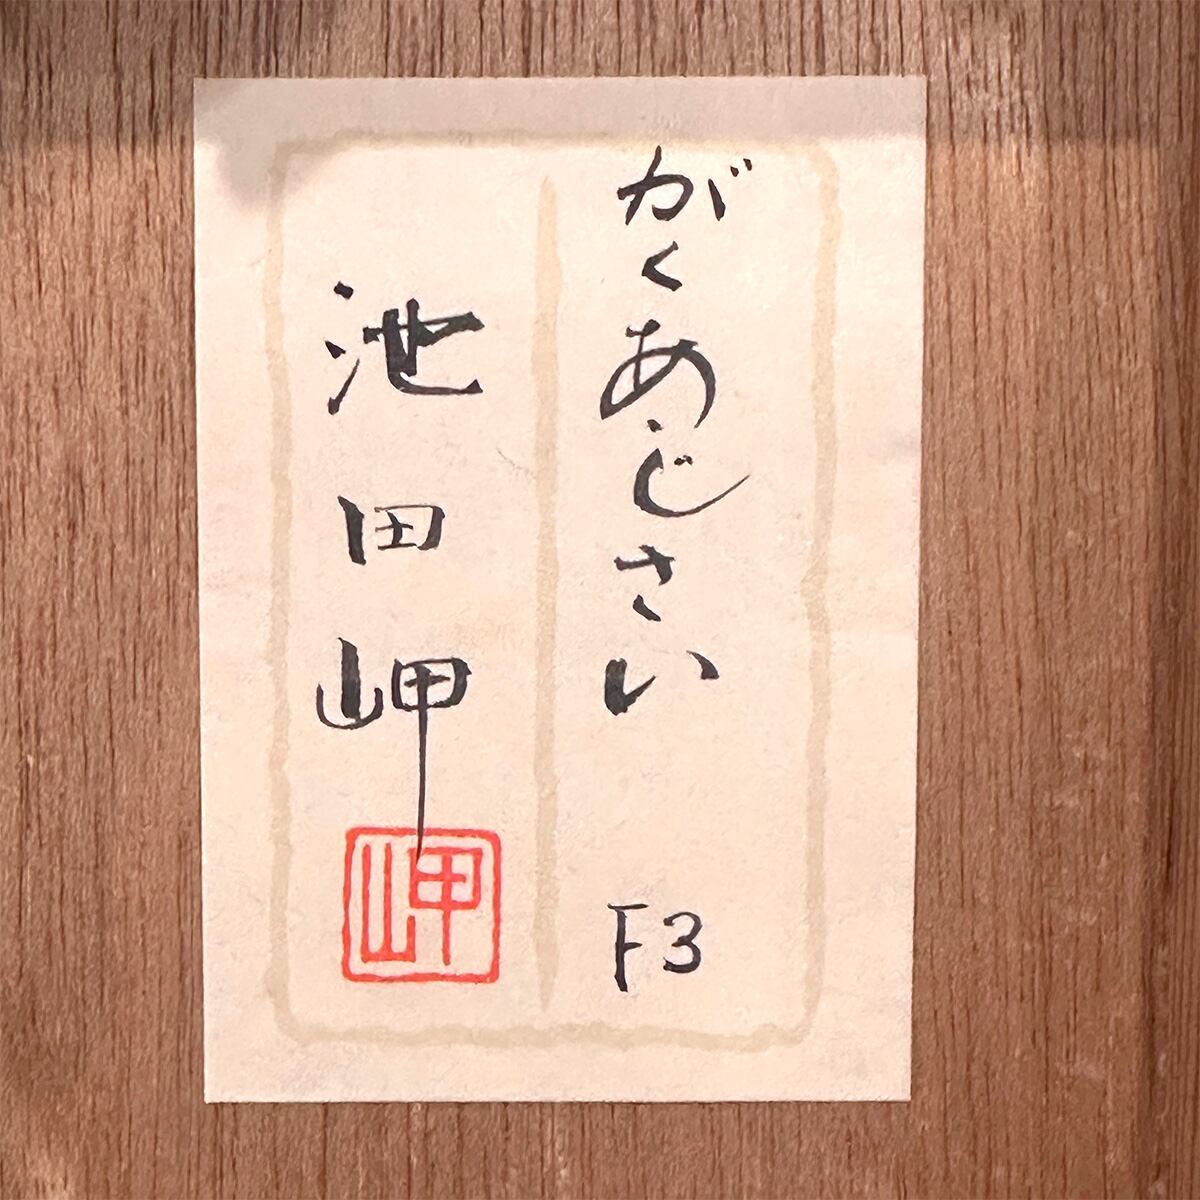 がくあじさい F3
池田岬
岬